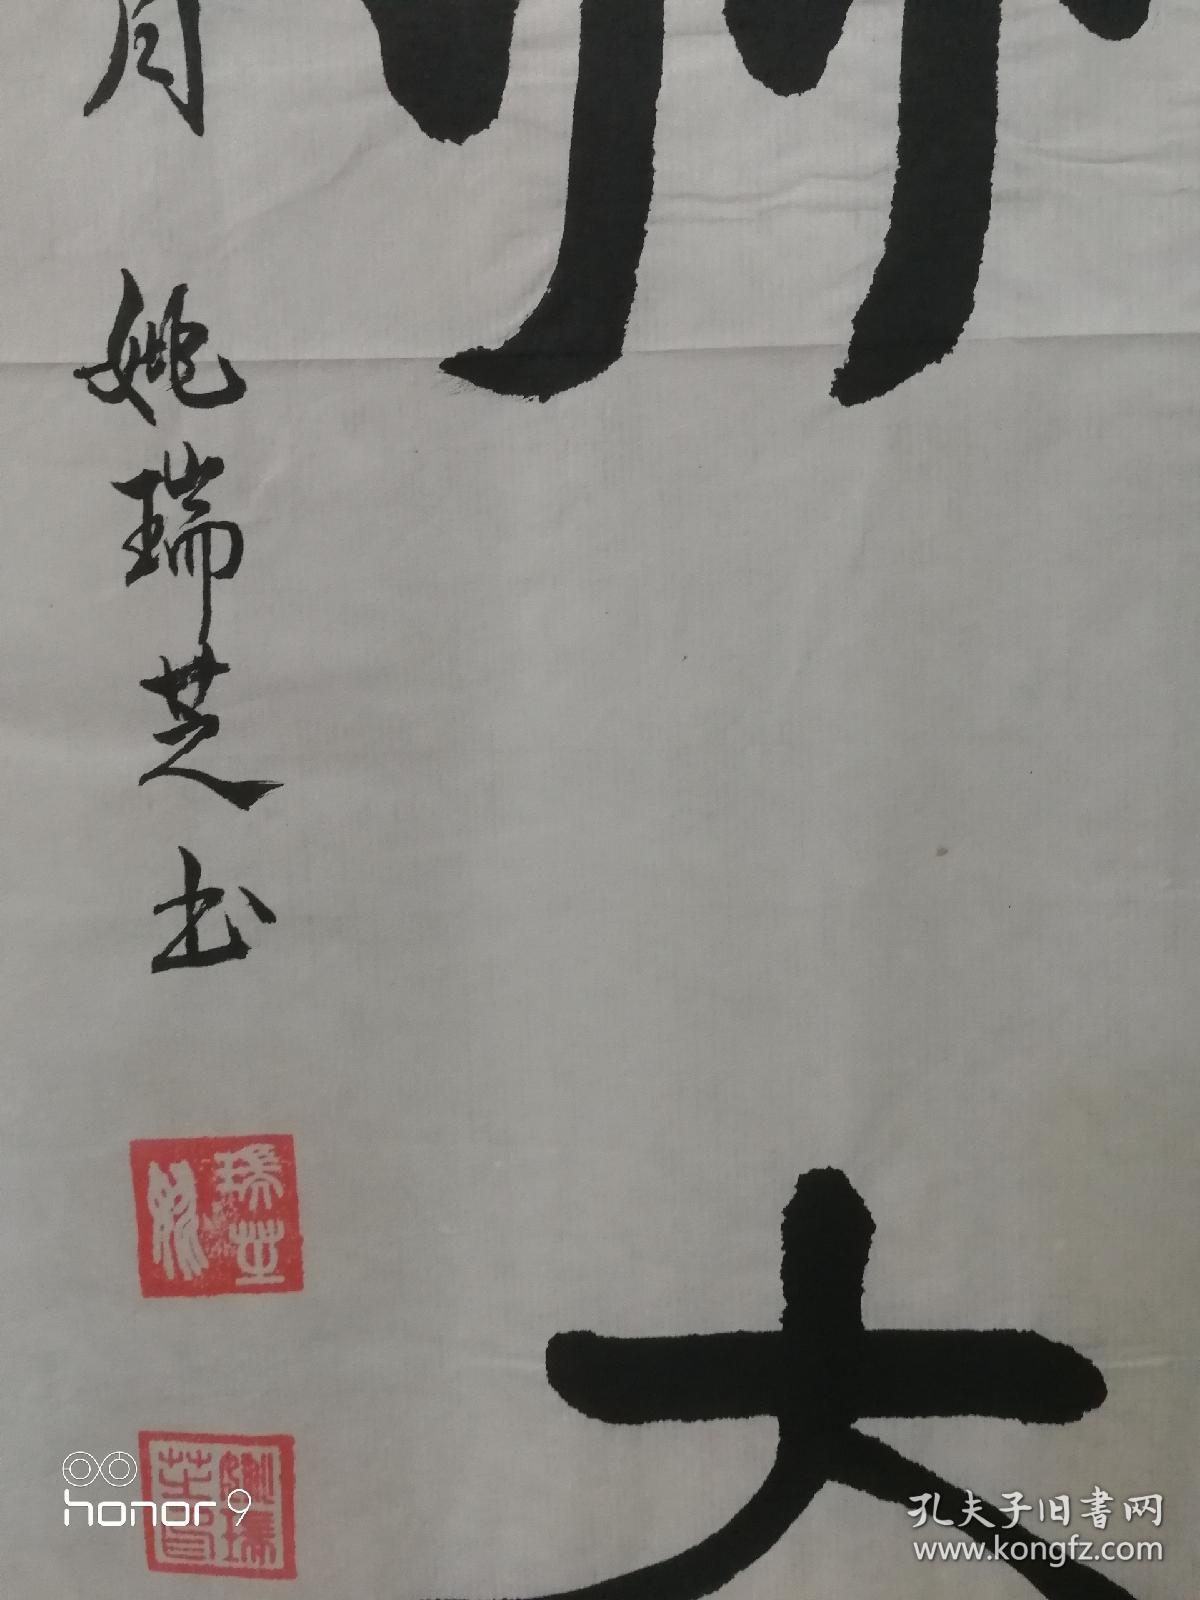 大
月 姚瑞芝书
瑞芝
姚瑞芝印
honor 9
孔夫子旧书网
www.kongfz.com